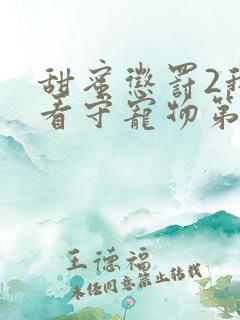 甜蜜惩罚2我
看守宠物第
王德福
未经同意禁止转载